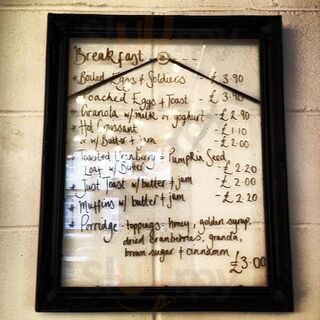 Breakfast - - -
* Boiled Eggs + Soldiers - £3.90
Poached Eggs + Toast - £3.90
* Granola w/ milk or yoghurt - £2.90
* Hot Croissant - £1.10
* or w/ Butter + jam - £2.00
* Toasted Cranberry + Pumpkin Seed
Loaf w/ Butter - £2.20
* Just Toast w/ butter + jam - £2.00
* Muffins w/ butter + jam - £2.20
* Porridge - toppings - honey, golden syrup,
dried cranberries, granola,
brown sugar + cinnamon
£3.00